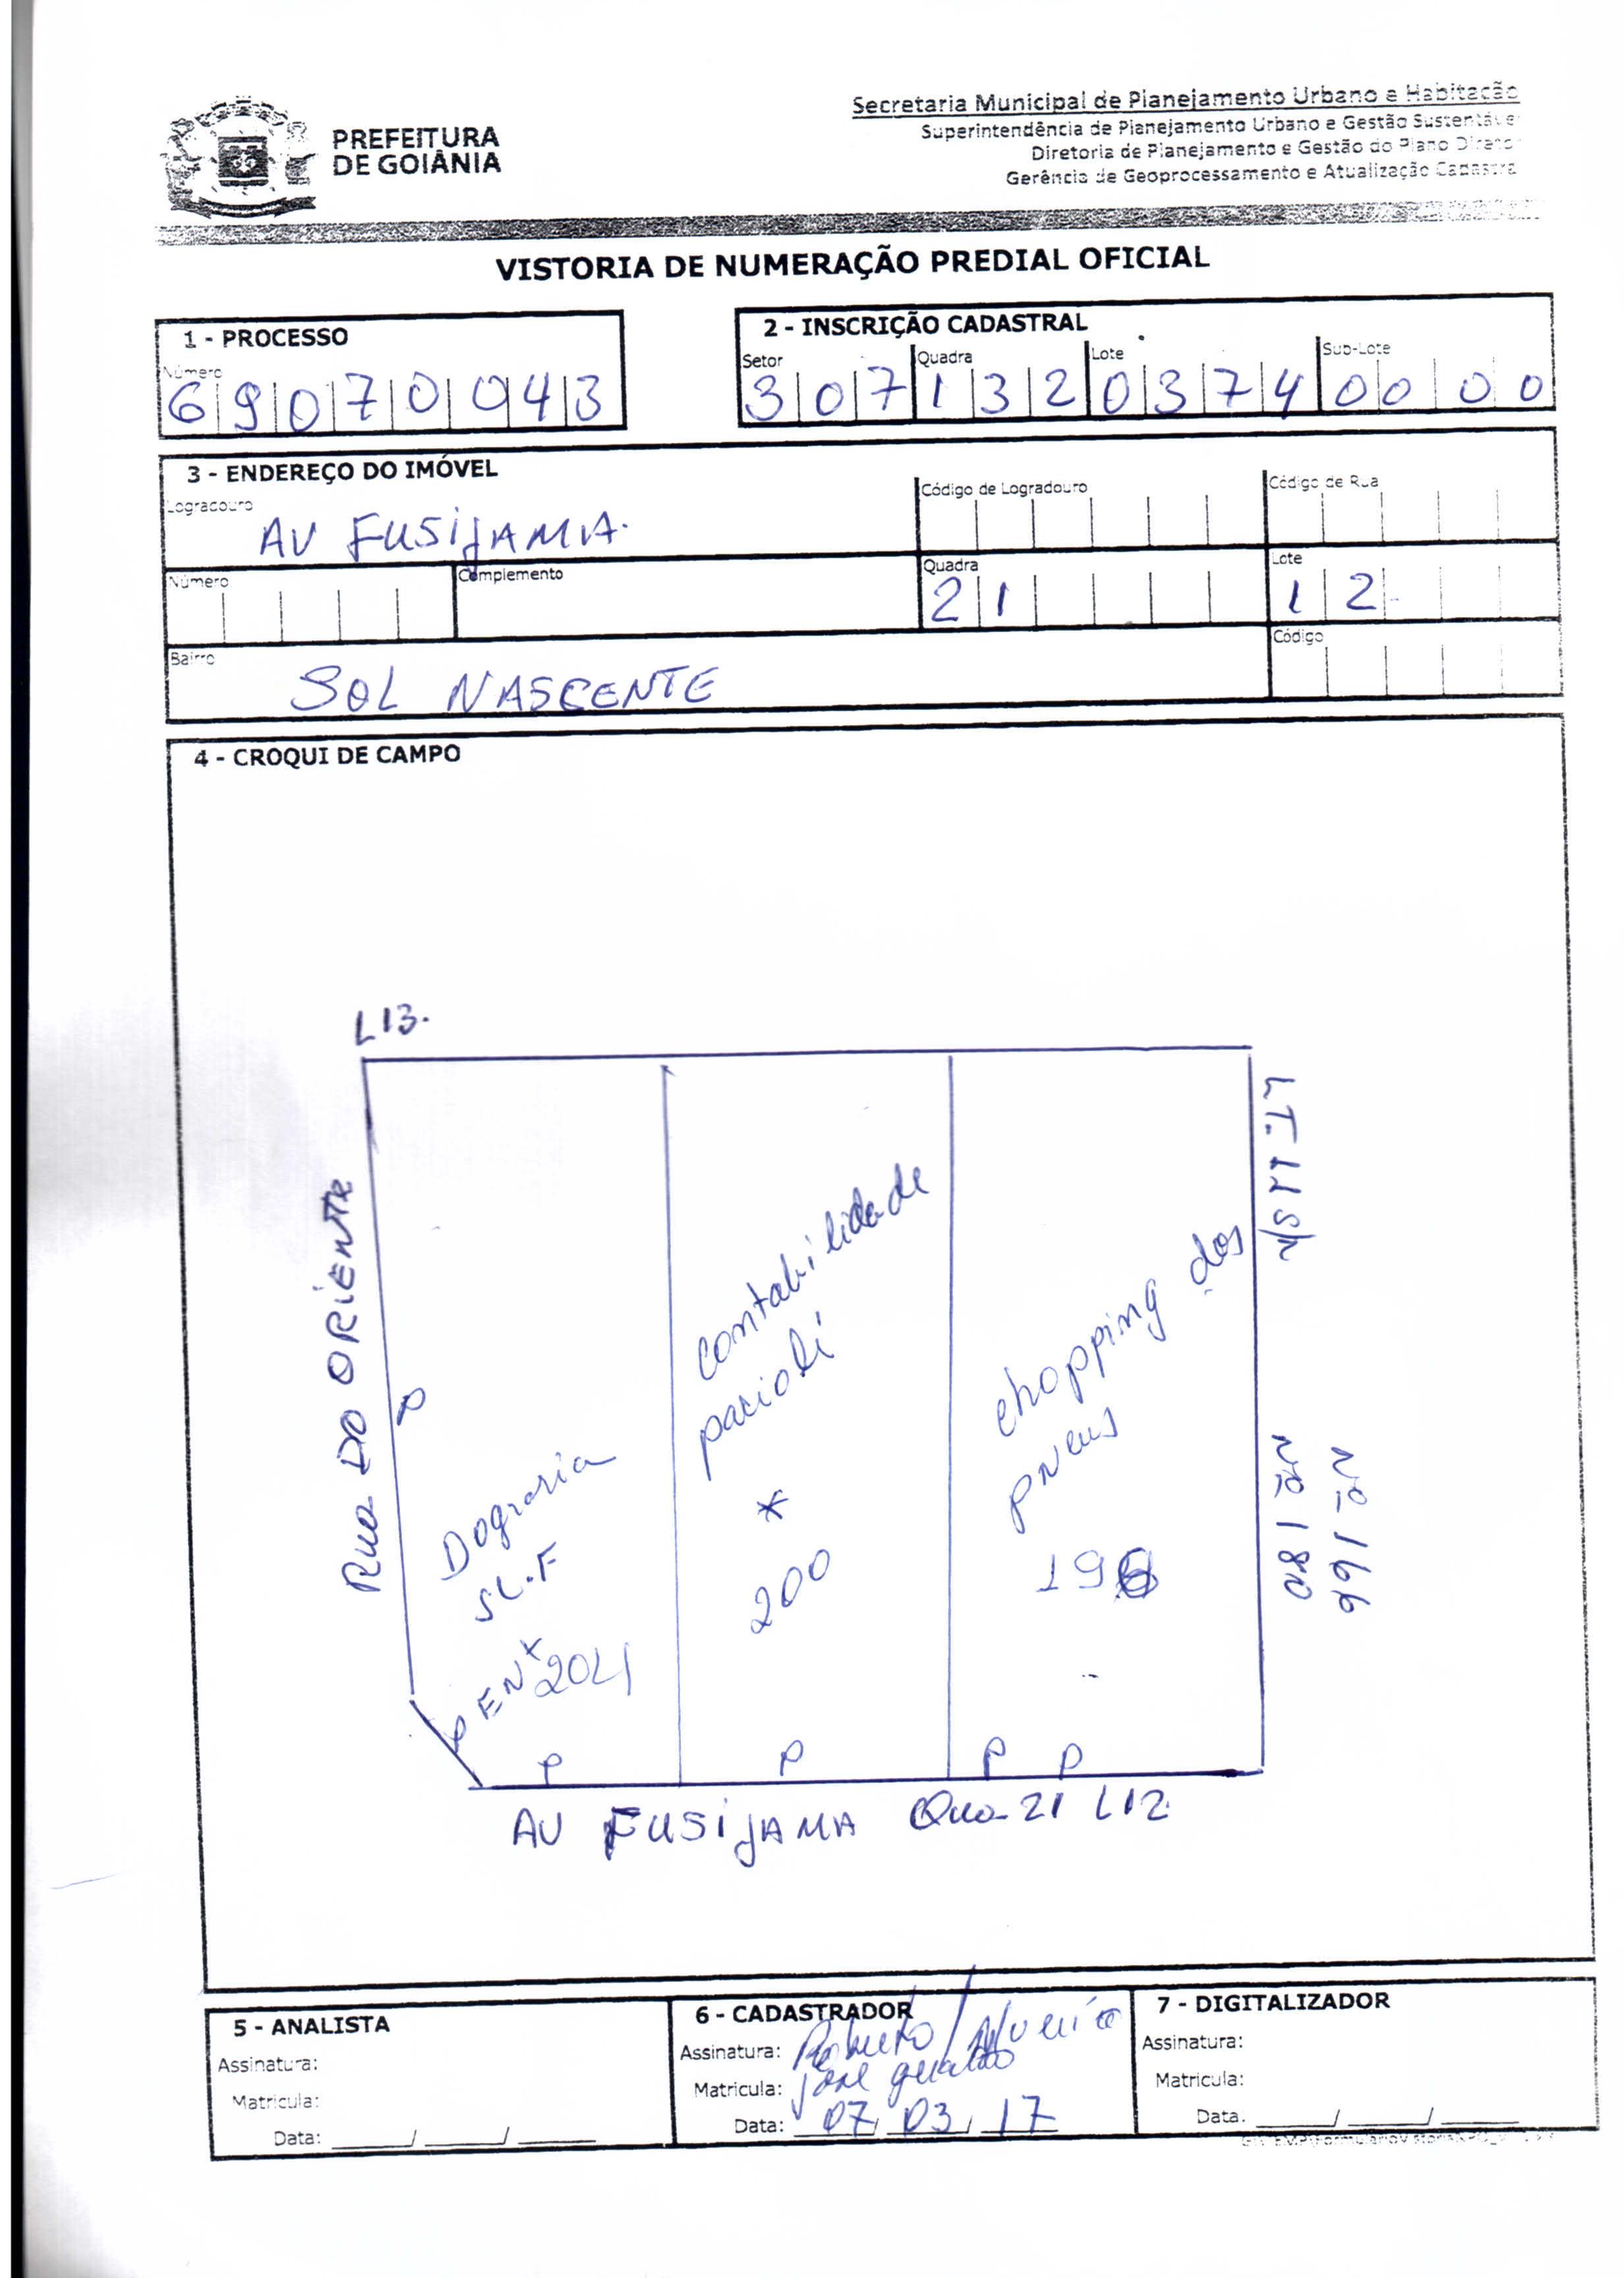 PREFEITURA
DE GOIÂNIA
Secretaria Municipal de Planejamento Urbano e Habitação
Superintendência de Planejamento Urbano e Gestão Sustentável
Diretoria de Planejamento e Gestão do Plano Diretor
Gerência de Geoprocessamento e Atualização Cadastral
VISTORIA DE NUMERAÇÃO PREDIAL OFICIAL
1 - PROCESSO
Número
69070043
2 - INSCRIÇÃO CADASTRAL
Setor Quadra Lote Sub-Lote
307 132 0374 0000
3 - ENDEREÇO DO IMÓVEL
Logradouro
AV FUSIJAMA.
Código de Logradouro
Código de Rua
Número
Complemento
Quadra
21
Lote
12
Bairro
SOL NASCENTE
Código
4 - CROQUI DE CAMPO
L13.
Rua DO ORIENTE
P
Dograria
SL.F
P EN* 204
P
contabilidade
pacioli
*
200
P
chopping dos
pneus
196
P P
LT. 11 S/N
Nº 180
Nº 166
AV FUSIJAMA Qua-21 L12
5 - ANALISTA
Assinatura:
Matricula:
Data: ____/____/____
6 - CADASTRADOR
Assinatura: Roberto /
Matricula: José
Data: 07/03/17
7 - DIGITALIZADOR
Assinatura:
Matricula:
Data. ____/____/____